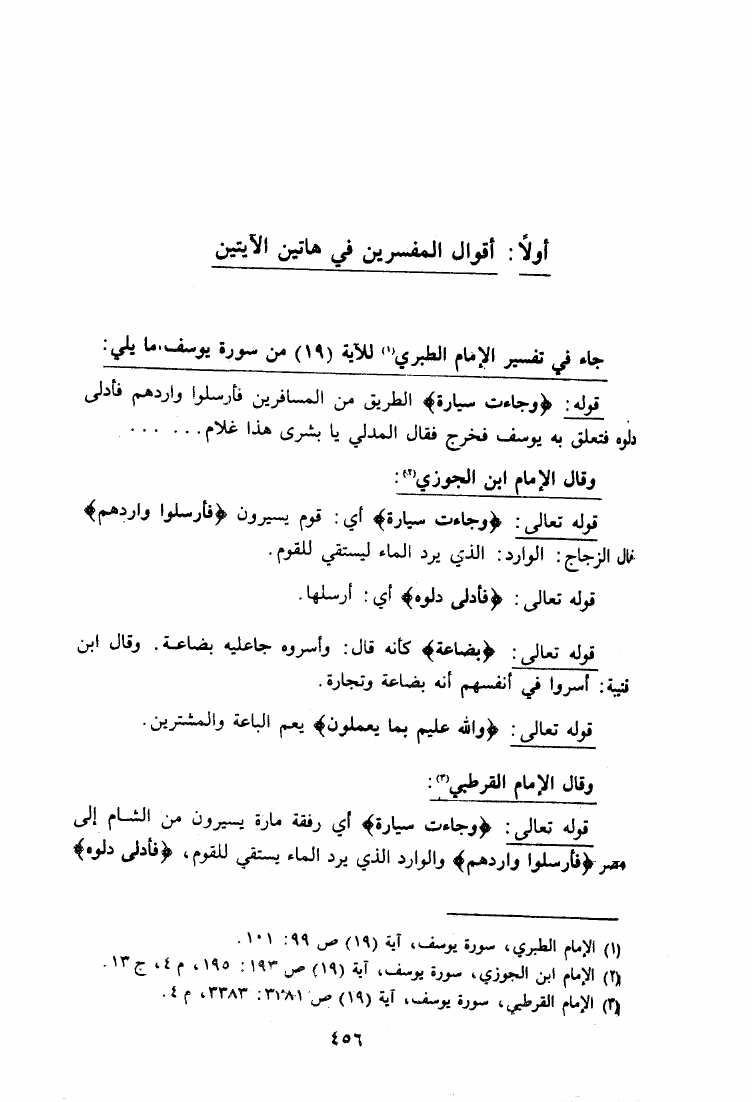 أولاً: أقوال المفسرين في هاتين الآيتين
جاء في تفسير الإمام الطبري(١) للآية (١٩) من سورة يوسف ما يلي:
قوله: ﴿وجاءت سيارة﴾ الطريق من المسافرين فأرسلوا واردهم فأدلى
دلوه فتعلق به يوسف فخرج فقال المدلي يا بشرى هذا غلام... ...
وقال الإمام ابن الجوزي(٢):
قوله تعالى: ﴿وجاءت سيارة﴾ أي: قوم يسيرون ﴿فأرسلوا واردهم﴾
قال الزجاج: الوارد: الذي يرد الماء ليستقي للقوم.
قوله تعالى: ﴿فأدلى دلوه﴾ أي: أرسلها.
قوله تعالى: ﴿بضاعة﴾ كأنه قال: وأسروه جاعليه بضاعة. وقال ابن
قتيبة: أسروا في أنفسهم أنه بضاعة وتجارة.
قوله تعالى: ﴿والله عليم بما يعملون﴾ يعم الباعة والمشترين.
وقال الإمام القرطبي(٣):
قوله تعالى: ﴿وجاءت سيارة﴾ أي رفقة مارة يسيرون من الشام إلى
مصر ﴿فأرسلوا واردهم﴾ والوارد الذي يرد الماء يستقي للقوم، ﴿فأدلى دلوه﴾
(١) الإمام الطبري، سورة يوسف، آية (١٩) ص ٩٩: ١٠١.
(٢) الإمام ابن الجوزي، سورة يوسف، آية (١٩) ص ١٩٣: ١٩٥، م ٤، ج ١٣.
(٣) الإمام القرطبي، سورة يوسف، آية (١٩) ص ٣٣٨١: ٣٣٨٣، م ٤.
٤٥٦